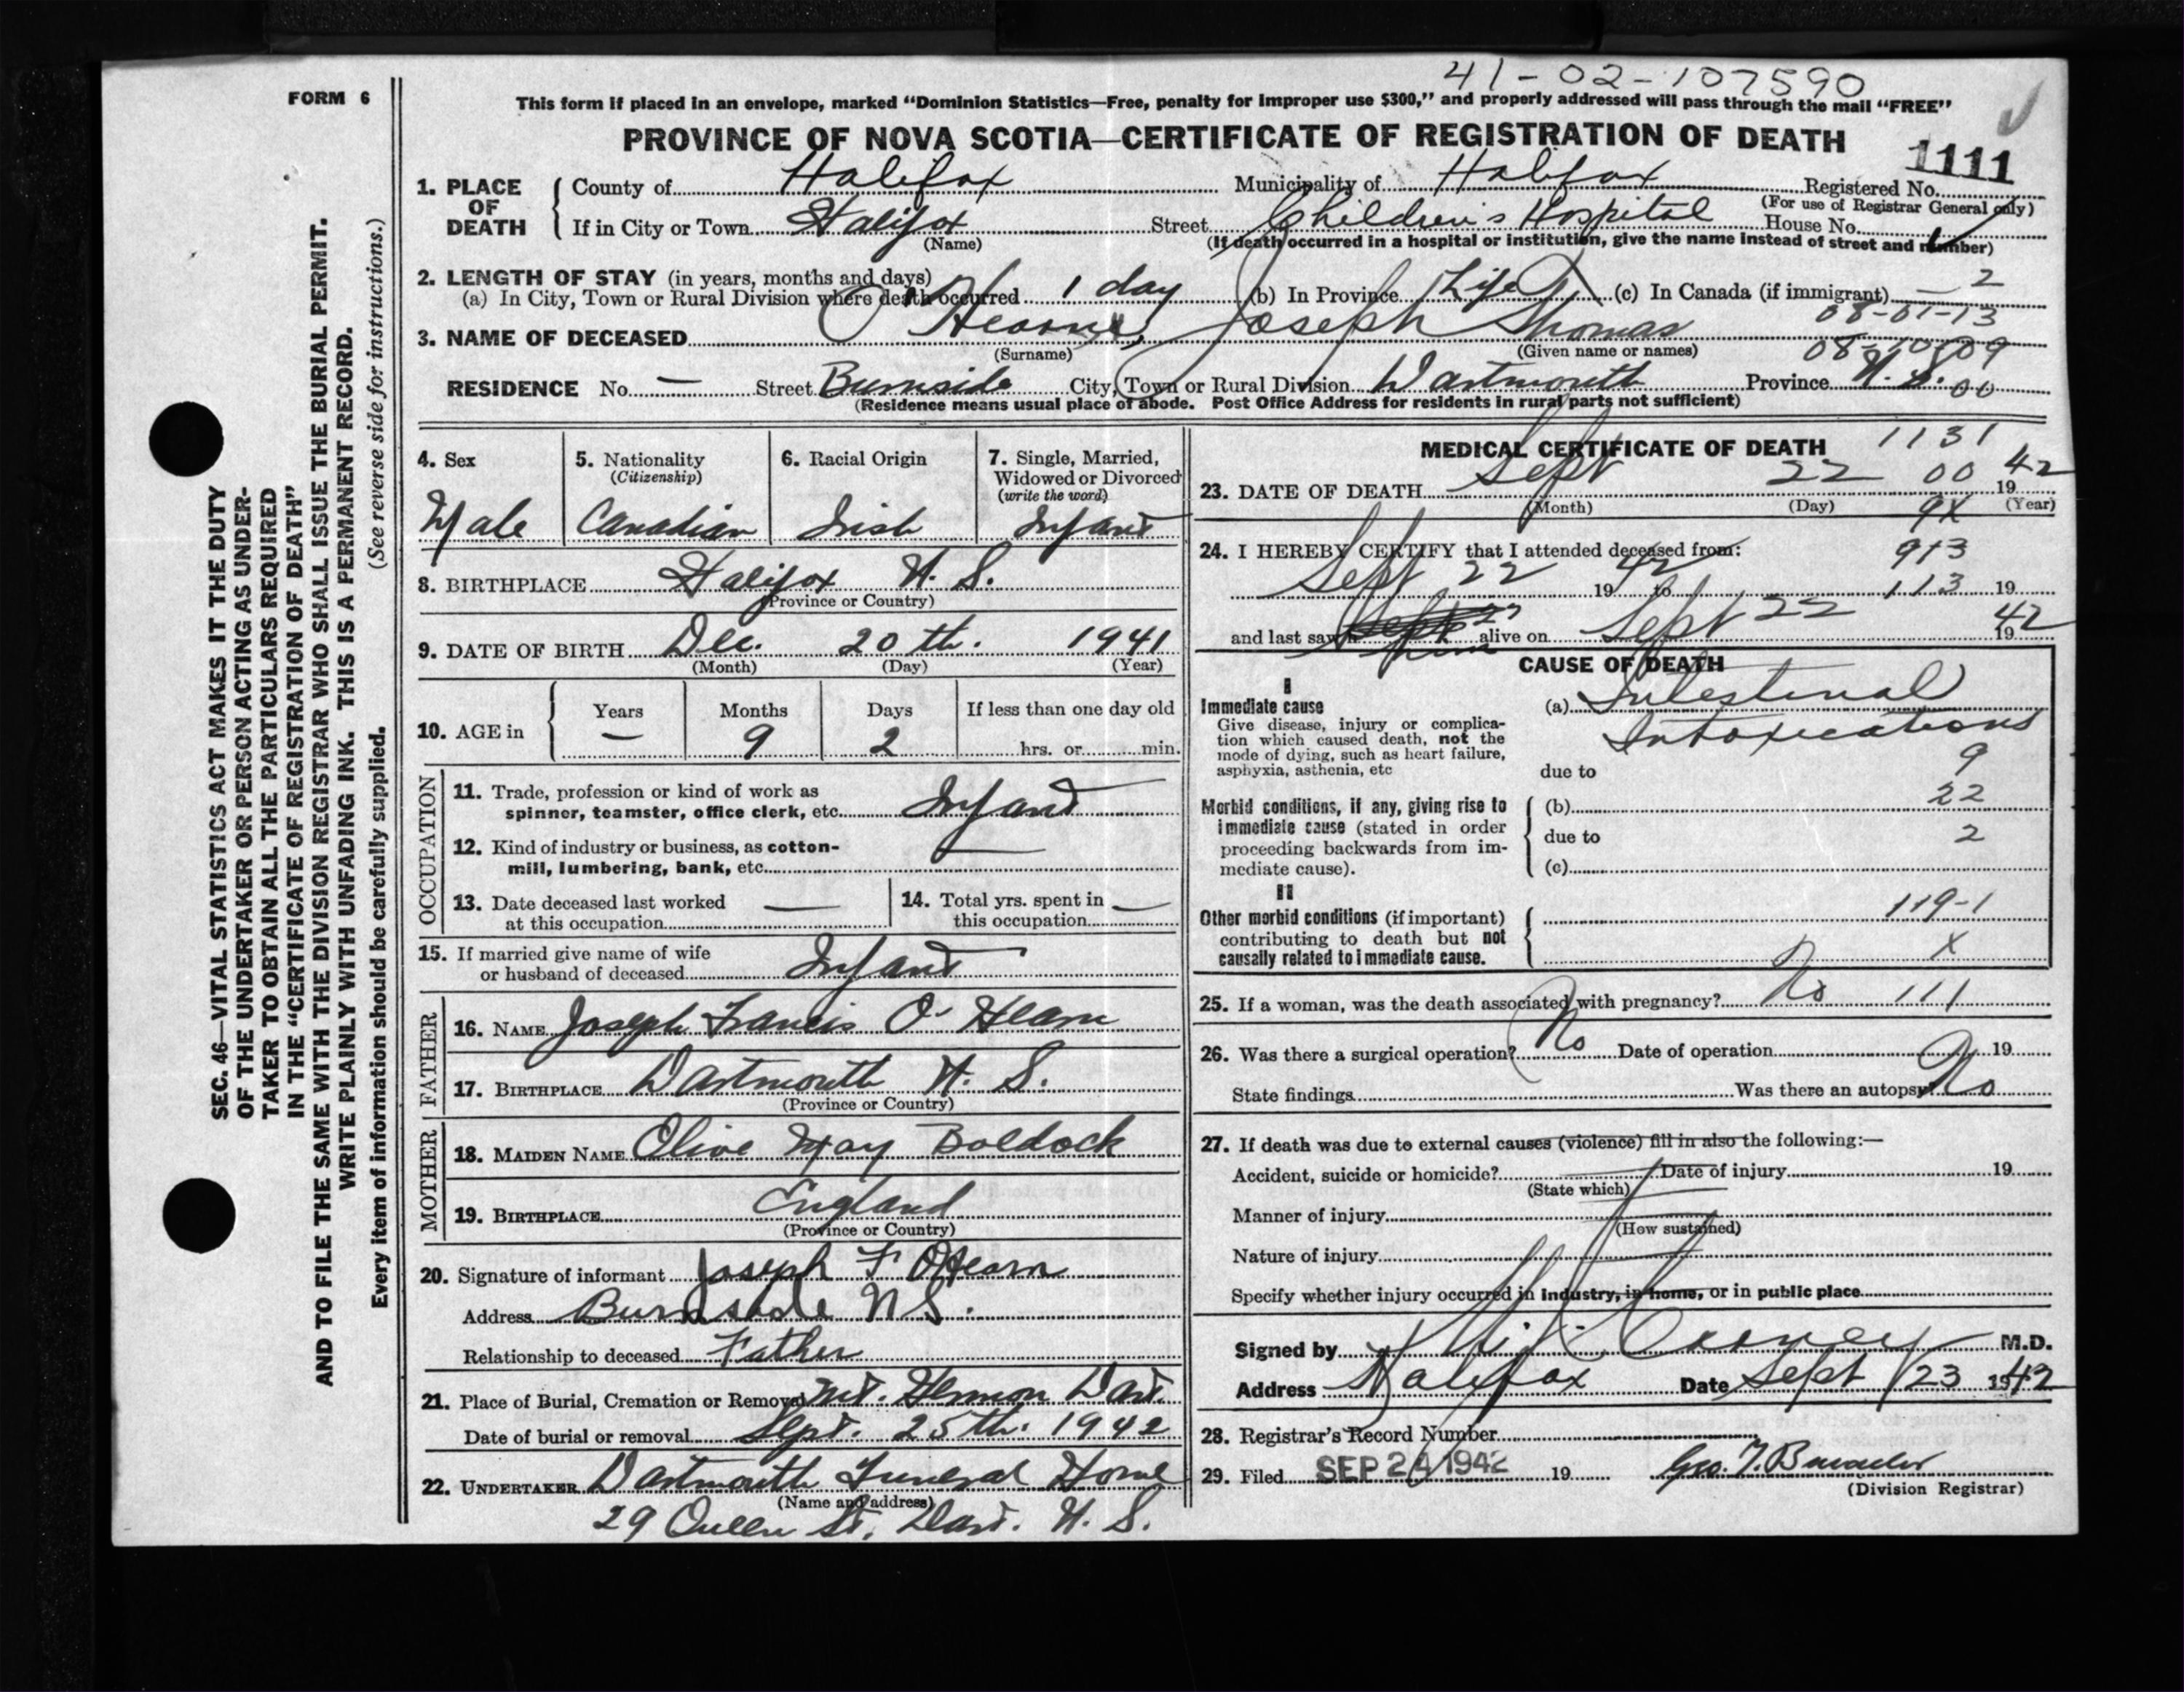 41-02-107590
FORM 6
This form if placed in an envelope, marked “Dominion Statistics—Free, penalty for Improper use $300,” and properly addressed will pass through the mail “FREE”
PROVINCE OF NOVA SCOTIA—CERTIFICATE OF REGISTRATION OF DEATH
1111
1. PLACE OF DEATH County of Halifax Municipality of Halifax Registered No.
(For use of Registrar General only)
If in City or Town Halifax Street Children's Hospital House No.
(Name) (If death occurred in a hospital or institution, give the name instead of street and number)
2. LENGTH OF STAY (in years, months and days)
(a) In City, Town or Rural Division where death occurred 1 day (b) In Province Life (c) In Canada (if immigrant) — 2
08-01-13
3. NAME OF DECEASED O'Hearn, Joseph Thomas
(Surname) (Given name or names)
RESIDENCE No. — Street Burnside City, Town or Rural Division Dartmouth Province N.S. 00
(Residence means usual place of abode. Post Office Address for residents in rural parts not sufficient)
4. Sex
Male
5. Nationality
(Citizenship)
Canadian
6. Racial Origin
Irish
7. Single, Married,
Widowed or Divorced
(write the word)
Infant
8. BIRTHPLACE Halifax N.S.
(Province or Country)
9. DATE OF BIRTH Dec. 20th. 1941
(Month) (Day) (Year)
10. AGE in
Years Months Days If less than one day old
— 9 2 hrs. or min.
OCCUPATION
11. Trade, profession or kind of work as
spinner, teamster, office clerk, etc. Infant
12. Kind of industry or business, as cotton-
mill, lumbering, bank, etc. —
13. Date deceased last worked
at this occupation —
14. Total yrs. spent in
this occupation —
15. If married give name of wife
or husband of deceased Infant
FATHER
16. NAME Joseph Francis O'Hearn
17. BIRTHPLACE Dartmouth N.S.
(Province or Country)
MOTHER
18. MAIDEN NAME Olive May Boldock
19. BIRTHPLACE England
(Province or Country)
20. Signature of informant Joseph F O'Hearn
Address Burnside N S.
Relationship to deceased Father
21. Place of Burial, Cremation or Removal Mt. Hermon Dart.
Date of burial or removal Sept. 25th. 1942
22. UNDERTAKER Dartmouth Funeral Home
(Name and address)
29 Queen St. Dart. N.S.
MEDICAL CERTIFICATE OF DEATH 1131
23. DATE OF DEATH Sept 22 00 1942
(Month) (Day) (Year)
9X
24. I HEREBY CERTIFY that I attended deceased from:
913
Sept 22 1942 to 113 19
and last saw him alive on Sept 22 1942
CAUSE OF DEATH
I
Immediate cause
Give disease, injury or complica-
tion which caused death, not the
mode of dying, such as heart failure,
asphyxia, asthenia, etc
(a) Intestinal
Intoxications
9
due to
Morbid conditions, if any, giving rise to
immediate cause (stated in order
proceeding backwards from im-
mediate cause).
(b) 22
due to 2
(c)
II
Other morbid conditions (if important)
contributing to death but not
causally related to immediate cause.
119-1
X
25. If a woman, was the death associated with pregnancy? No 111
26. Was there a surgical operation? No Date of operation 19
State findings Was there an autopsy? No
27. If death was due to external causes (violence) fill in also the following:—
Accident, suicide or homicide? Date of injury 19
(State which)
Manner of injury
(How sustained)
Nature of injury
Specify whether injury occurred in Industry, in home, or in public place
Signed by M.D.
Address Halifax Date Sept 23 1942
28. Registrar's Record Number
29. Filed SEP 24 1942 19
(Division Registrar)
SEC. 46—VITAL STATISTICS ACT MAKES IT THE DUTY
OF THE UNDERTAKER OR PERSON ACTING AS UNDER-
TAKER TO OBTAIN ALL THE PARTICULARS REQUIRED
IN THE “CERTIFICATE OF REGISTRATION OF DEATH”
AND TO FILE THE SAME WITH THE DIVISION REGISTRAR WHO SHALL ISSUE THE BURIAL PERMIT.
WRITE PLAINLY WITH UNFADING INK. THIS IS A PERMANENT RECORD.
(See reverse side for instructions.)
Every item of information should be carefully supplied.